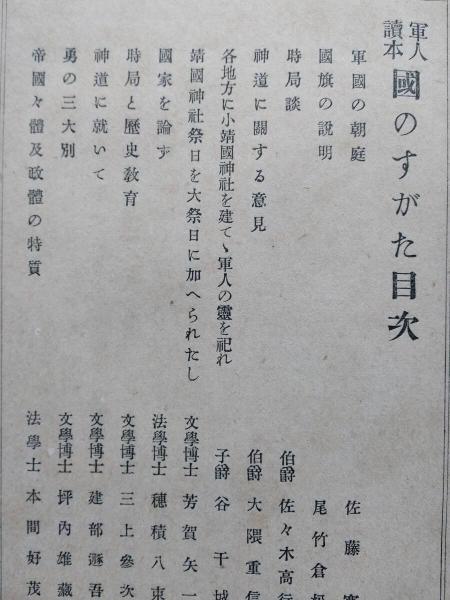 軍人讀本 國のすがた目次
軍國の朝庭 佐藤
國旗の説明 尾竹倉
時局談 伯爵 佐々木高行
神道に關する意見 伯爵 大隈重信
各地方に小靖國神社を建てゝ軍人の靈を祀れ 子爵 谷干城
靖國神社祭日を大祭日に加へられたし 文學博士 芳賀矢一
國家を論ず 法學博士 穗積八束
時局と歷史教育 文學博士 三上參次
神道に就いて 文學博士 建部遯吾
勇の三大別 文學博士 坪內雄藏
帝國々體及政體の特質 法學士 本間好茂